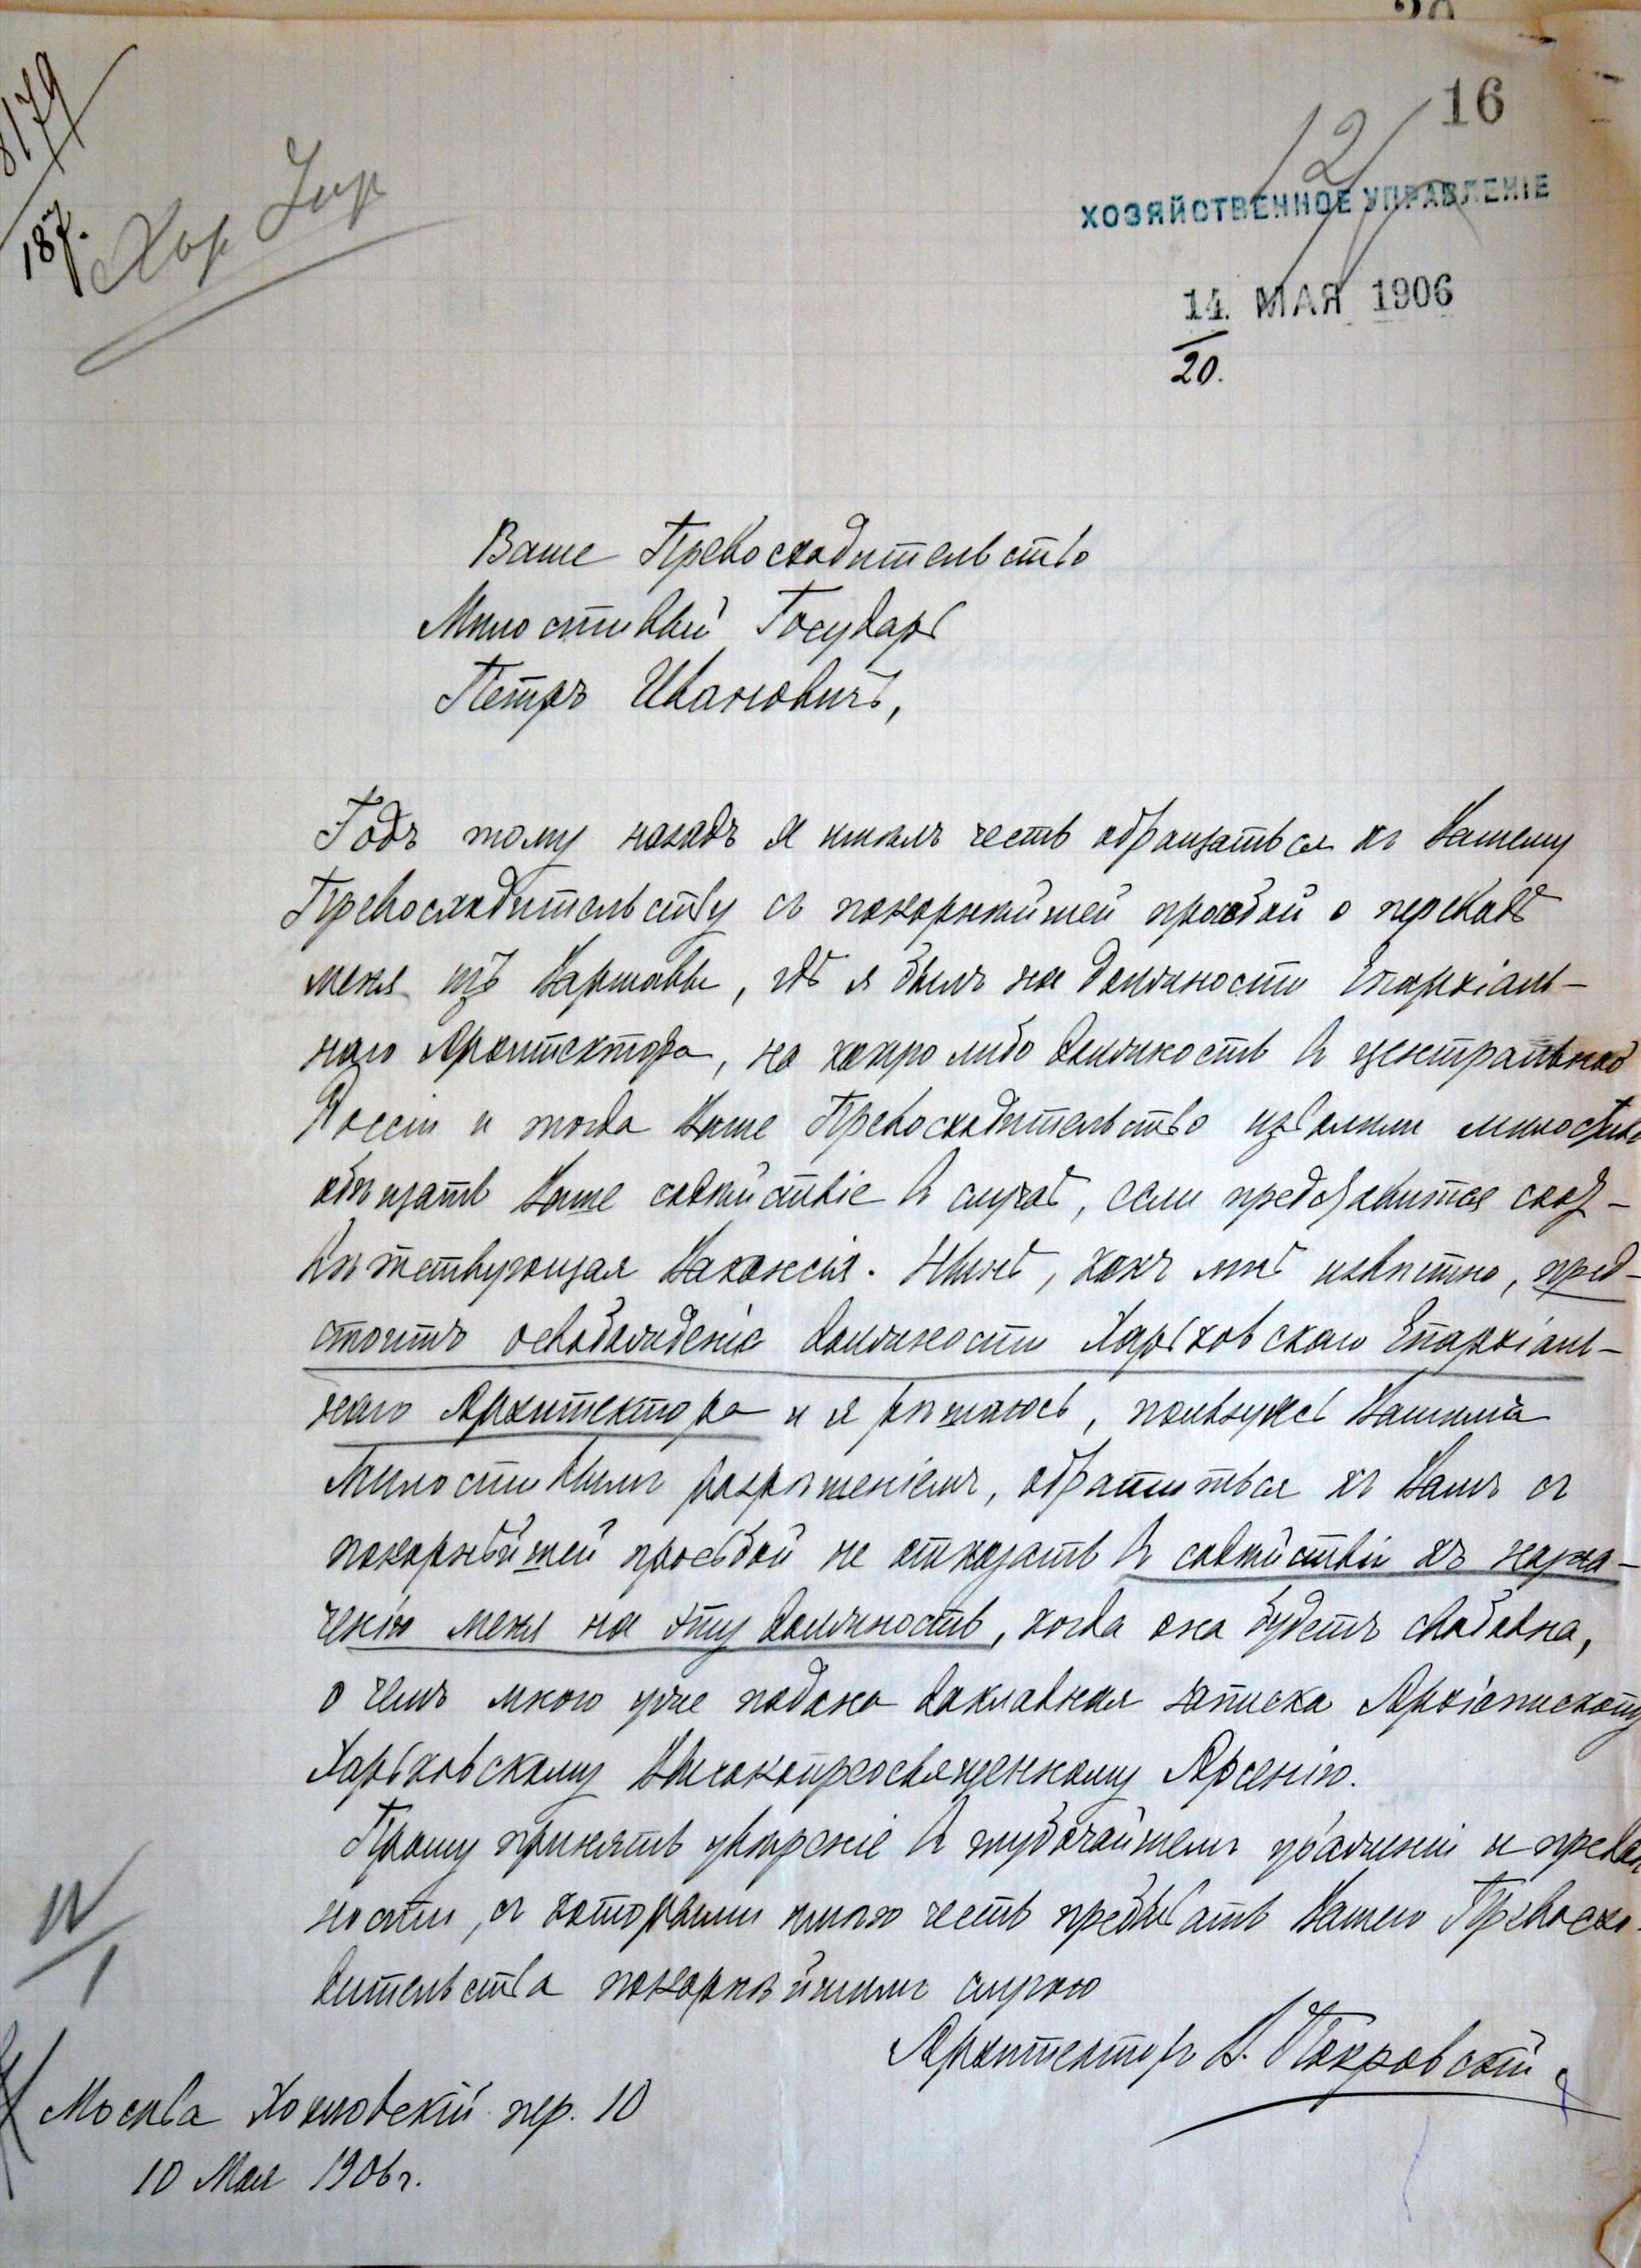 16
12/V
ХОЗЯЙСТВЕННОЕ УПРАВЛЕНІЕ
14. МАЯ 1906
20.
8179
Ваше Превосходительство
Милостивый Государь
Петръ Ивановичъ,
Годъ тому назадъ я имѣлъ честь обращаться къ Вашему
Превосходительству съ покорнѣйшей просьбой о переводѣ
меня изъ Варшавы, гдѣ я былъ на должности Епархіаль-
наго Архитектора, на какую либо должность въ центральной
Россіи и тогда Ваше Превосходительство изволили милостиво
обѣщать Ваше содѣйствіе въ случаѣ, если представится соот-
вѣтствующая вакансія. Нынѣ, какъ мнѣ извѣстно, пред-
стоитъ освобожденіе должности Харьковскаго Епархіаль-
наго Архитектора и я рѣшаюсь, пользуясь Вашимъ
милостивымъ разрѣшеніемъ, обратиться къ Вамъ съ
покорнѣйшей просьбой не отказать въ содѣйствіи къ назна-
ченію меня на эту должность, когда она будетъ свободна,
о чемъ мною уже подана докладная записка Архіепископу
Харьковскому Высокопреосвященному Арсенію.
Прошу принять увѣреніе въ глубочайшемъ уваженіи и предан
ности, съ которыми имѣю честь пребывать Вашего Превосхо-
дительства покорнѣйшимъ слугою
Архитекторъ В. Покровскій
Москва Хохловскій пер. 10
10 Мая 1906 г.